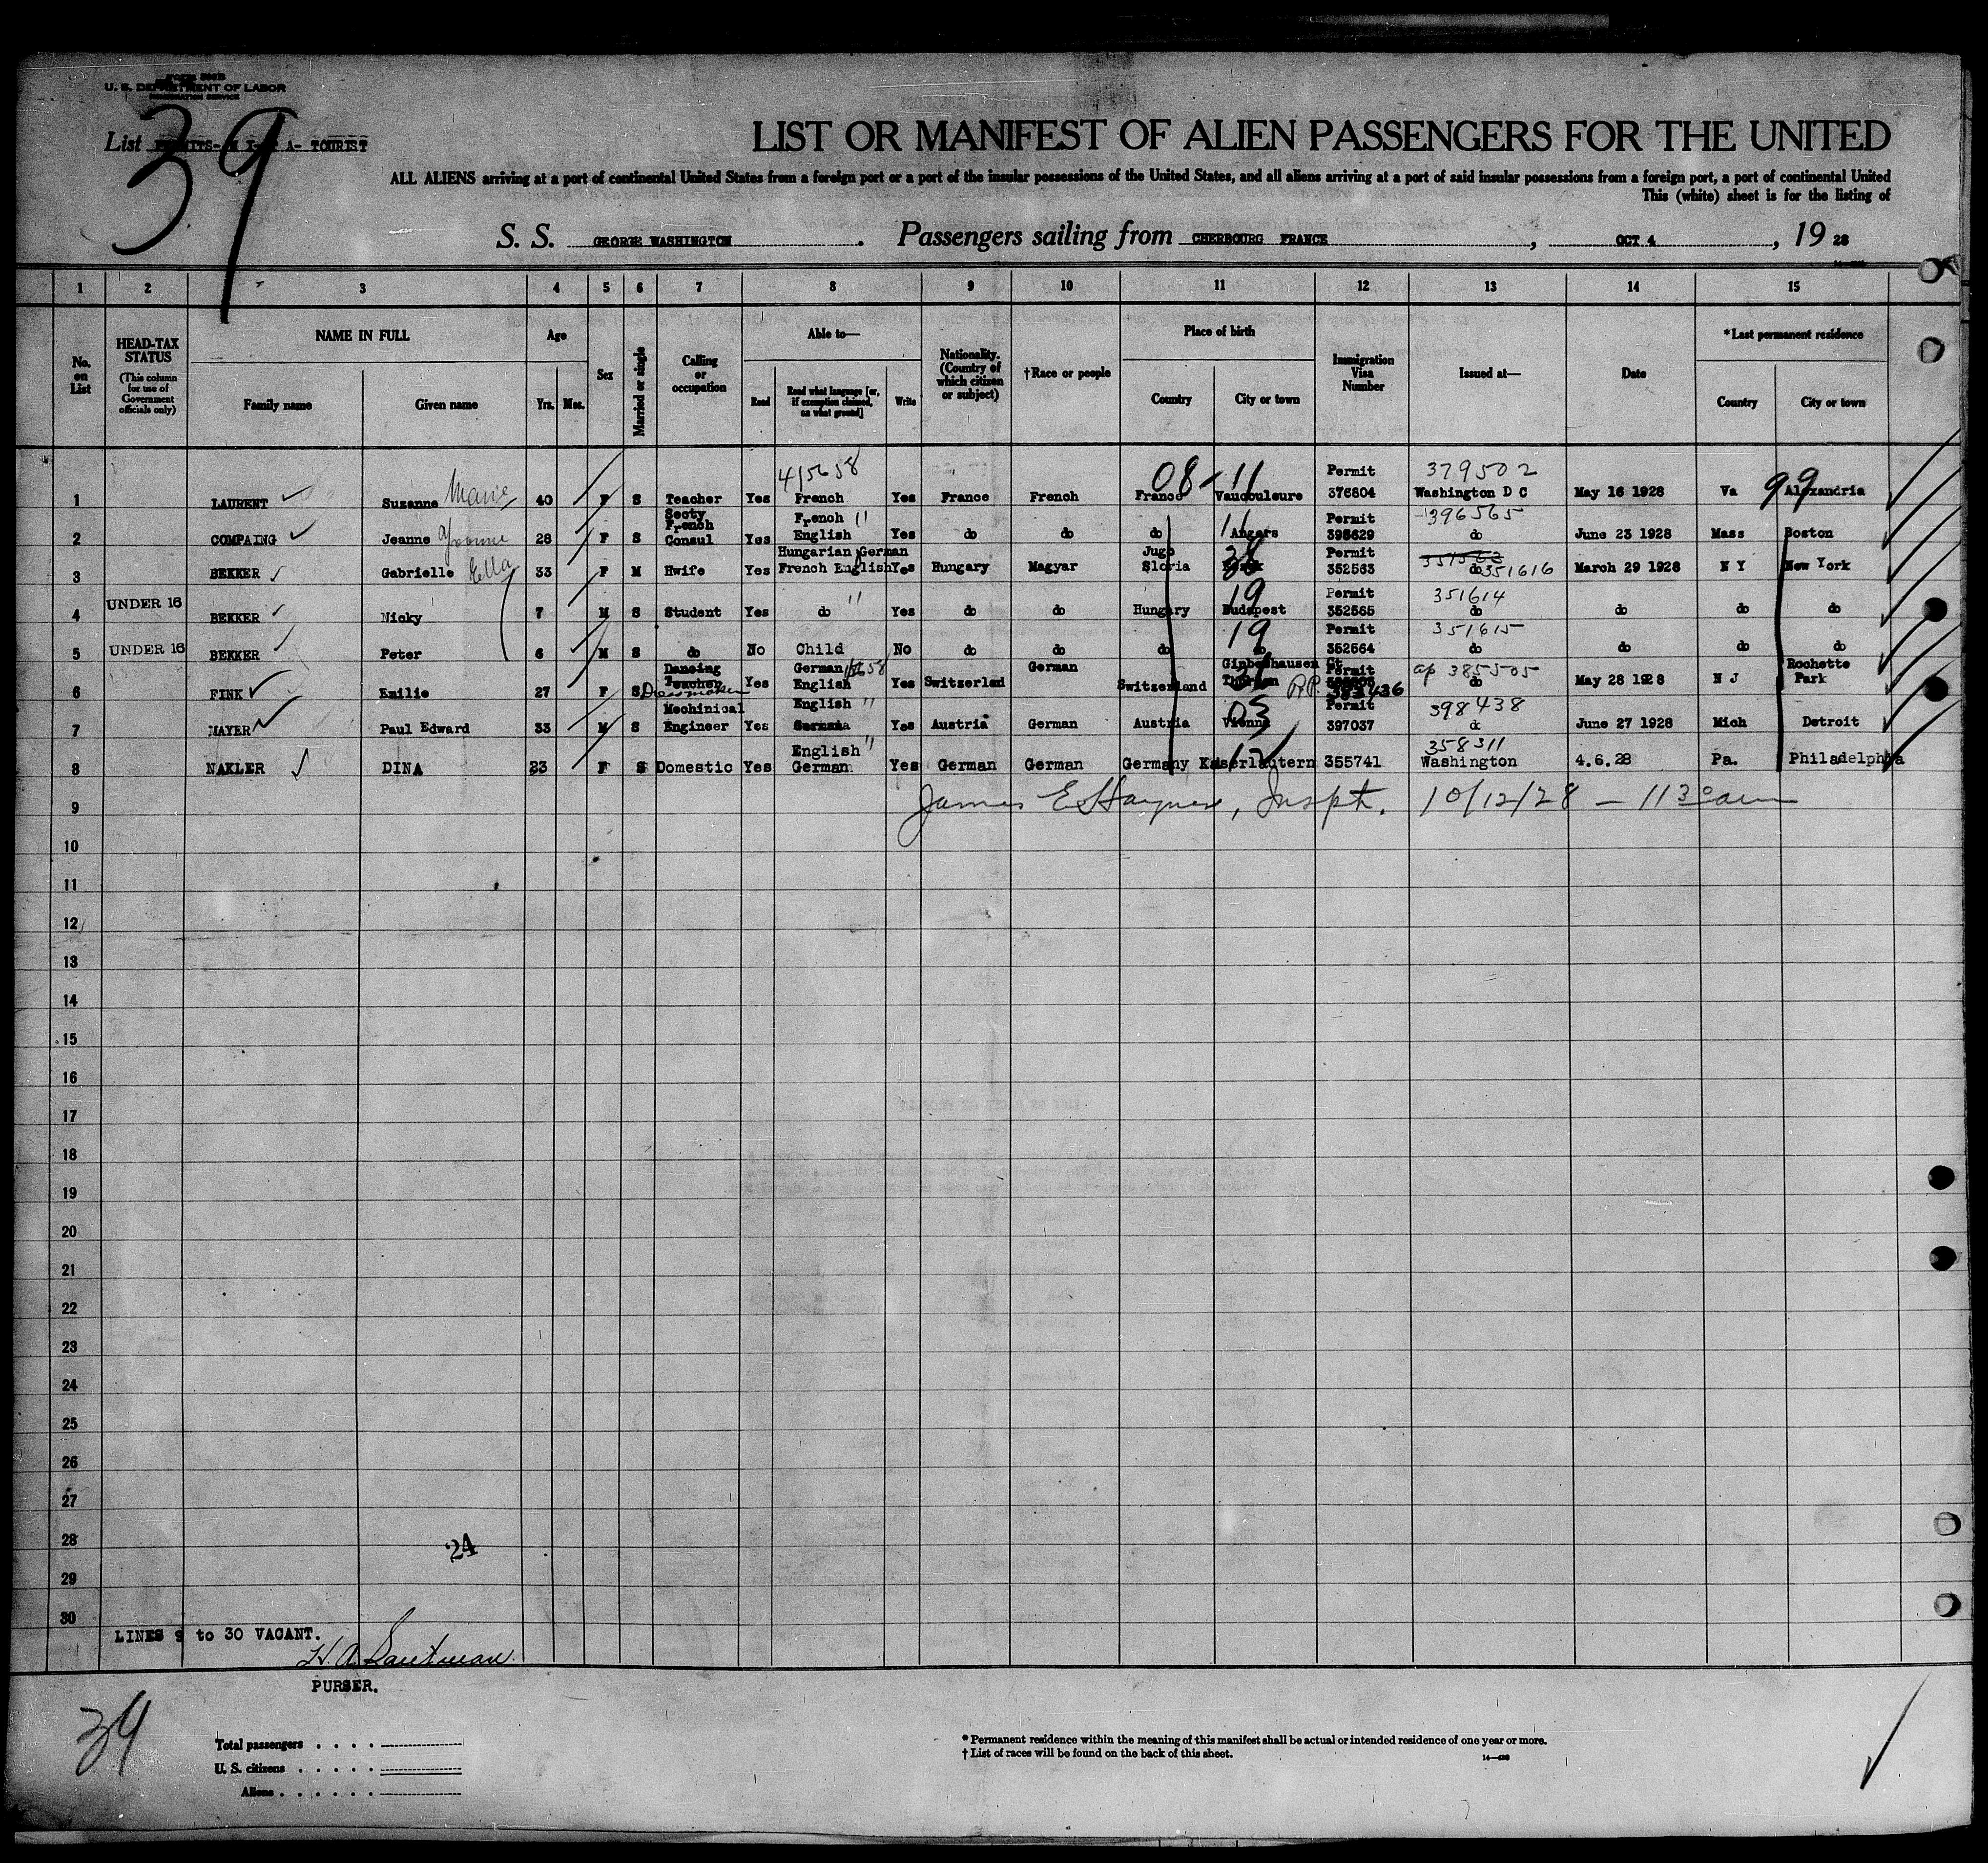 U. S. DEPARTMENT OF LABOR
List TOURIST
39
LIST OR MANIFEST OF ALIEN PASSENGERS FOR THE UNITED
ALL ALIENS arriving at a port of continental United States from a foreign port or a port of the insular possessions of the United States, and all aliens arriving at a port of said insular possessions from a foreign port, a port of continental United
This (white) sheet is for the listing of
S. S. GEORGE WASHINGTON. Passengers sailing from CHERBOURG FRANCE, OCT 4, 19 28
1 2 3 4 5 6 7 8 9 10 11 12 13 14 15
No. on List
HEAD-TAX STATUS (This column for use of Government officials only)
NAME IN FULL
Family name Given name
Age
Yrs. Mos.
Sex
Married or single
Calling or occupation
Able to—
Read Read what language [or, if exemption claimed, on what ground] Write
Nationality. (Country of which citizen or subject)
†Race or people
Place of birth
Country City or town
Immigration Visa Number
Issued at—
Date
*Last permanent residence
Country City or town
4/5658 08-11 Permit 379502 99
1 LAURENT Suzanne Marie 40 F S Teacher Yes French Yes France French France Vaucouleure 376804 Washington D C May 16 1928 Va Alexandria
Secty French French " 11 Permit 396565
2 COMPAING Jeanne Yvonne 28 F S Consul Yes English Yes do do do Angers 395629 do June 23 1928 Mass Boston
Hungarian German Jugo Permit
3 BEKKER Gabrielle Ella 33 F M Hwife Yes French English Yes Hungary Magyar Slovia 352563 do 351616 March 29 1928 N Y New York
UNDER 16 " 19 Permit 351614
4 BEKKER Nicky 7 M S Student Yes do Yes do do Hungary Budapest 352565 do do do do
UNDER 16 19 Permit 351615
5 BEKKER Peter 6 M S do No Child No do do do do 352564 do do do do
Dancing German German Permit ap 385505 Rochette
6 FINK Emilie 27 F S Teacher Dressmaker Yes English Yes Switzerland Switzerland R.P. 383436 do May 28 1928 N J Park
Mechinical English " 03 Permit 398438
7 MAYER Paul Edward 33 M S Engineer Yes German Yes Austria German Austria Vienna 397037 do June 27 1928 Mich Detroit
English " 358311
8 NAKLER DINA 23 F S Domestic Yes German Yes German German Germany Kaiserlautern 355741 Washington 4.6.28 Pa. Philadelphia
9 James E Haynes, Inspt. 10/12/28 – 11 30 am
10
11
12
13
14
15
16
17
18
19
20
21
22
23
24
25
26
27
28
24
29
30
LINES 9 to 30 VACANT.
PURSER.
39
Total passengers
U. S. citizens
Aliens
* Permanent residence within the meaning of this manifest shall be actual or intended residence of one year or more.
† List of races will be found on the back of this sheet.